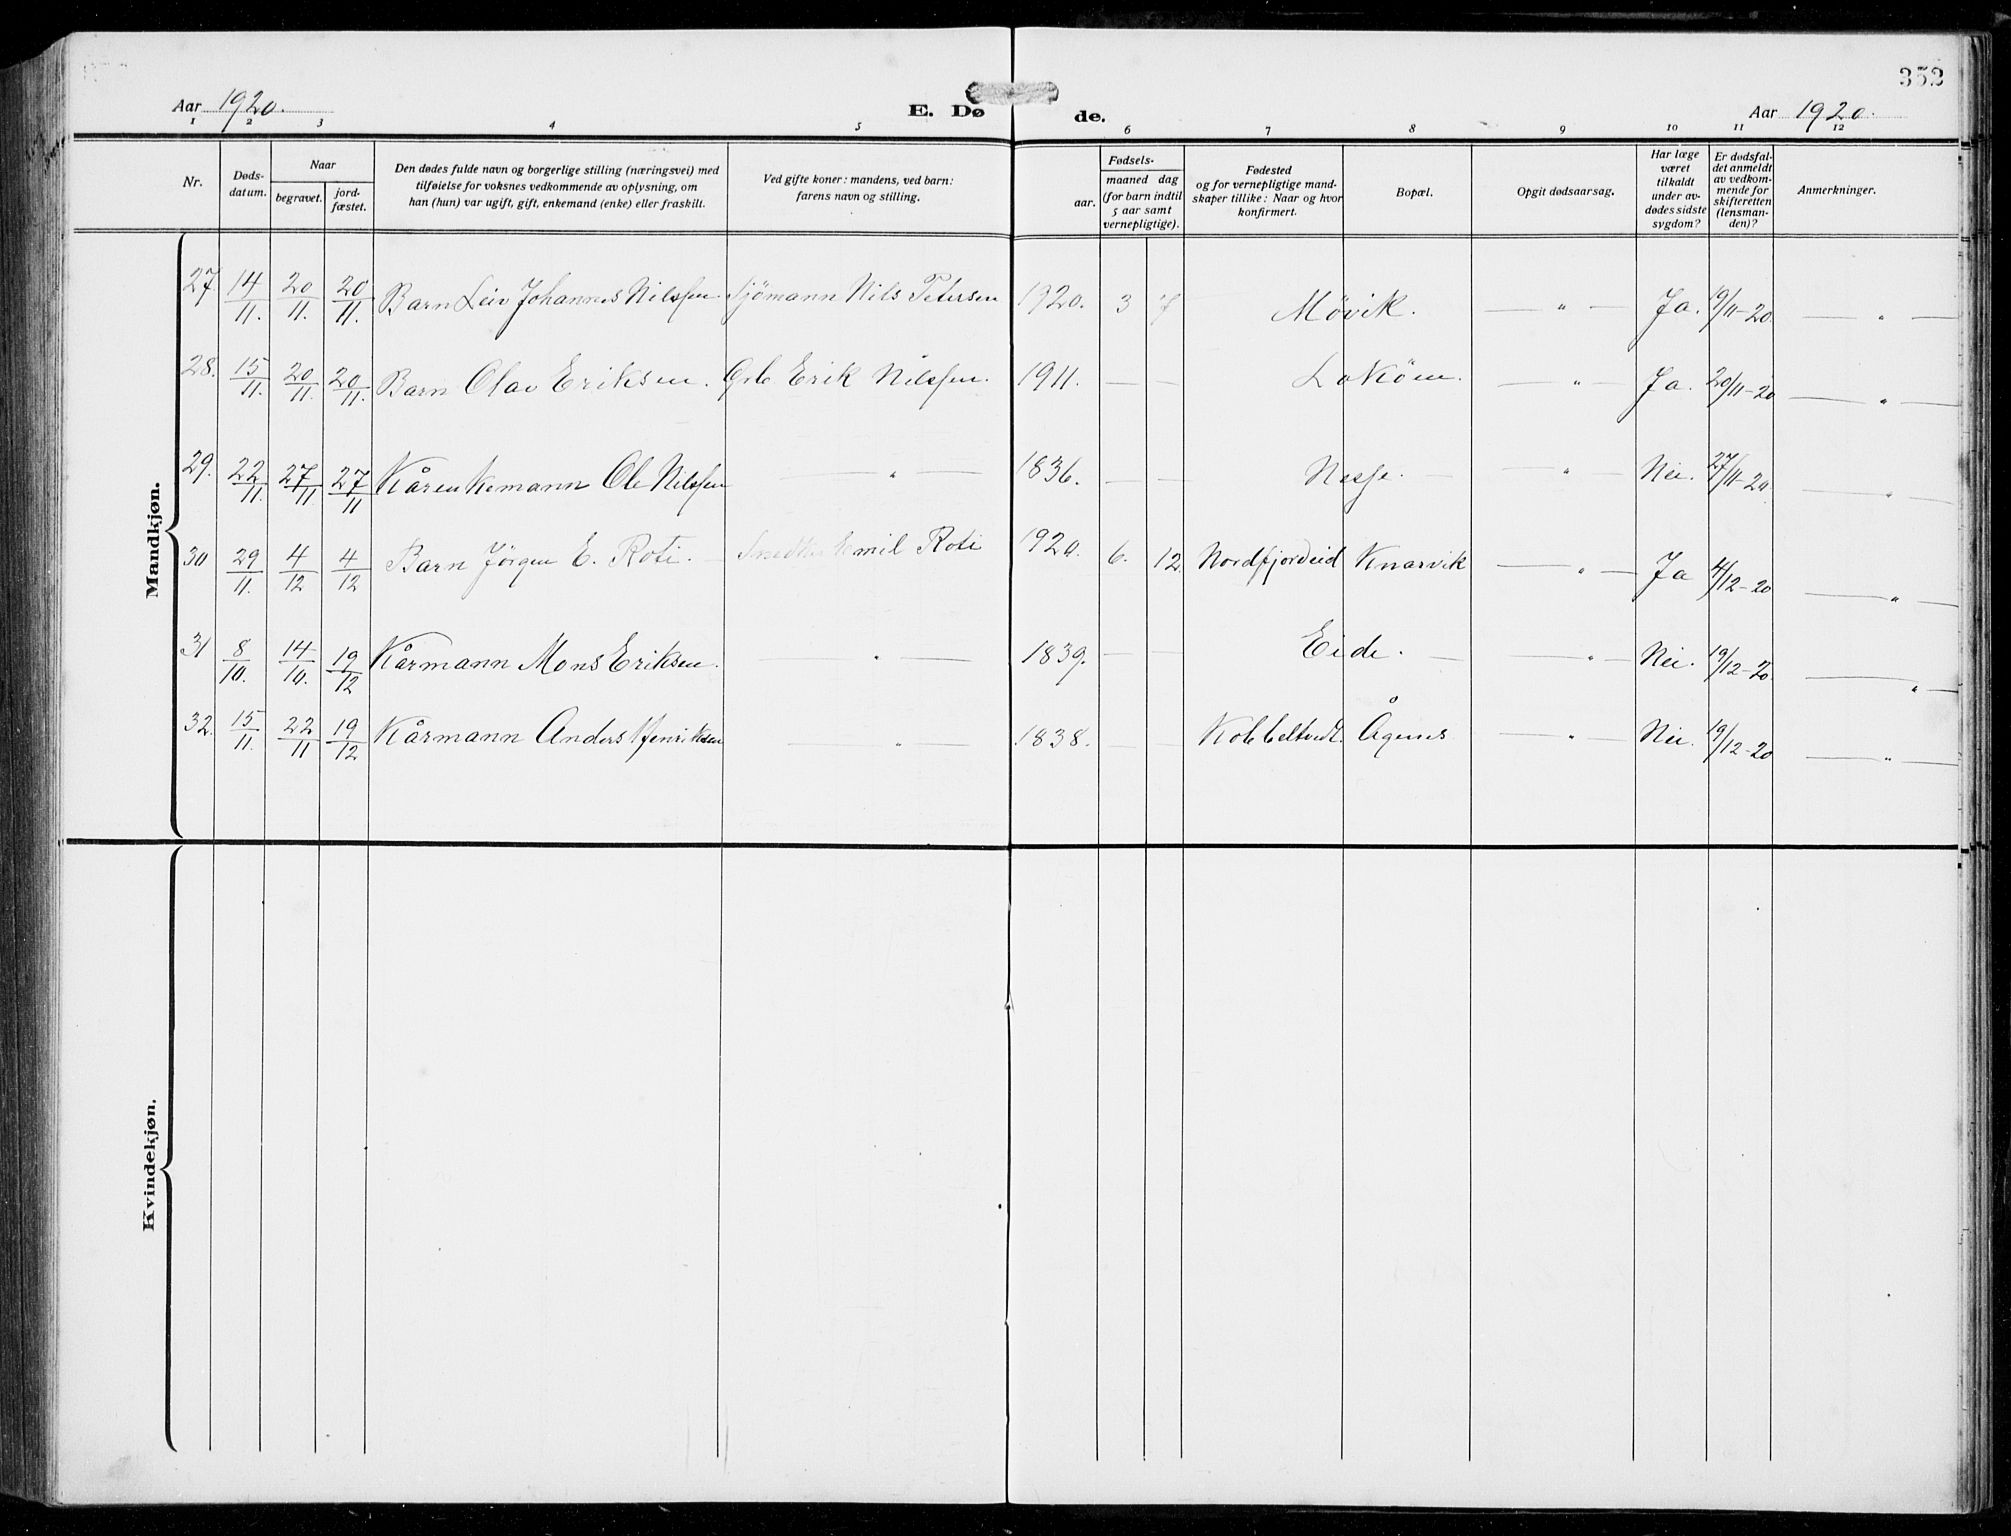 353
Aar 1920.
E. Døde.
Aar 1920.
1 2 3 4 5 6 7 8 9 10 11 12
Nr.
Døds-
datum.
Naar
begravet.
jord-
fæstet.
Den dødes fulde navn og borgerlige stilling (næringsvei) med
tilføielse for voksnes vedkommende av oplysning, om
han (hun) var ugift, gift, enkemand (enke) eller fraskilt.
Ved gifte koner: mandens, ved barn:
farens navn og stilling.
Fødsels-
aar.
maaned dag
(for barn indtil
5 aar samt
vernepligtige).
Fødested
og for vernepligtige mand-
skaper tillike: Naar og hvor
konfirmert.
Bopæl.
Opgit dødsaarsag.
Har læge
været
tilkaldt
under av-
dødes sidste
sygdom?
Er dødsfal-
det anmeldt
av vedkom-
mende for
skifteretten
(lensman-
den)?
Anmerkninger.
Mandkjøn.
27 14/11. 20/11. 20/11. Barn Leiv Johannes Nilssen Sjömann Nils Petersen 1920. 3 Møvik. — " — Ja. 19/11-20. — " —
28. 15/11. 20/11. 20/11. Barn Olav Eriksen. Grb Erik Nilssen. 1911. — — — " — Ja. 20/11-20 — " —
29. 22/11. 27/11 27/11 Kårenkemann Ole Nilssen — " — 1836. — — Nesse. — — " — Nei. 27/11-20. — " —
30 29/11. 4/12 4/12 Barn Jörgen E. Roti. — Snedker Emil Roti 1920. 6. 12. Nordfjordeid Knarvik — " — Ja 4/12-20 — " —
31 8/10. 14/10. 19/12 Kårmann Mons Eriksen. — " — 1839. — — Eide. — — " — Nei. 19/12-20. — " —
32. 15/11. 22/11 19/12 Kårmann Anders Henriksen — " — 1838. — — Kobbeltvedt. Ågenes — " — Nei. 19/12-20 — " —
Kvindekjøn.